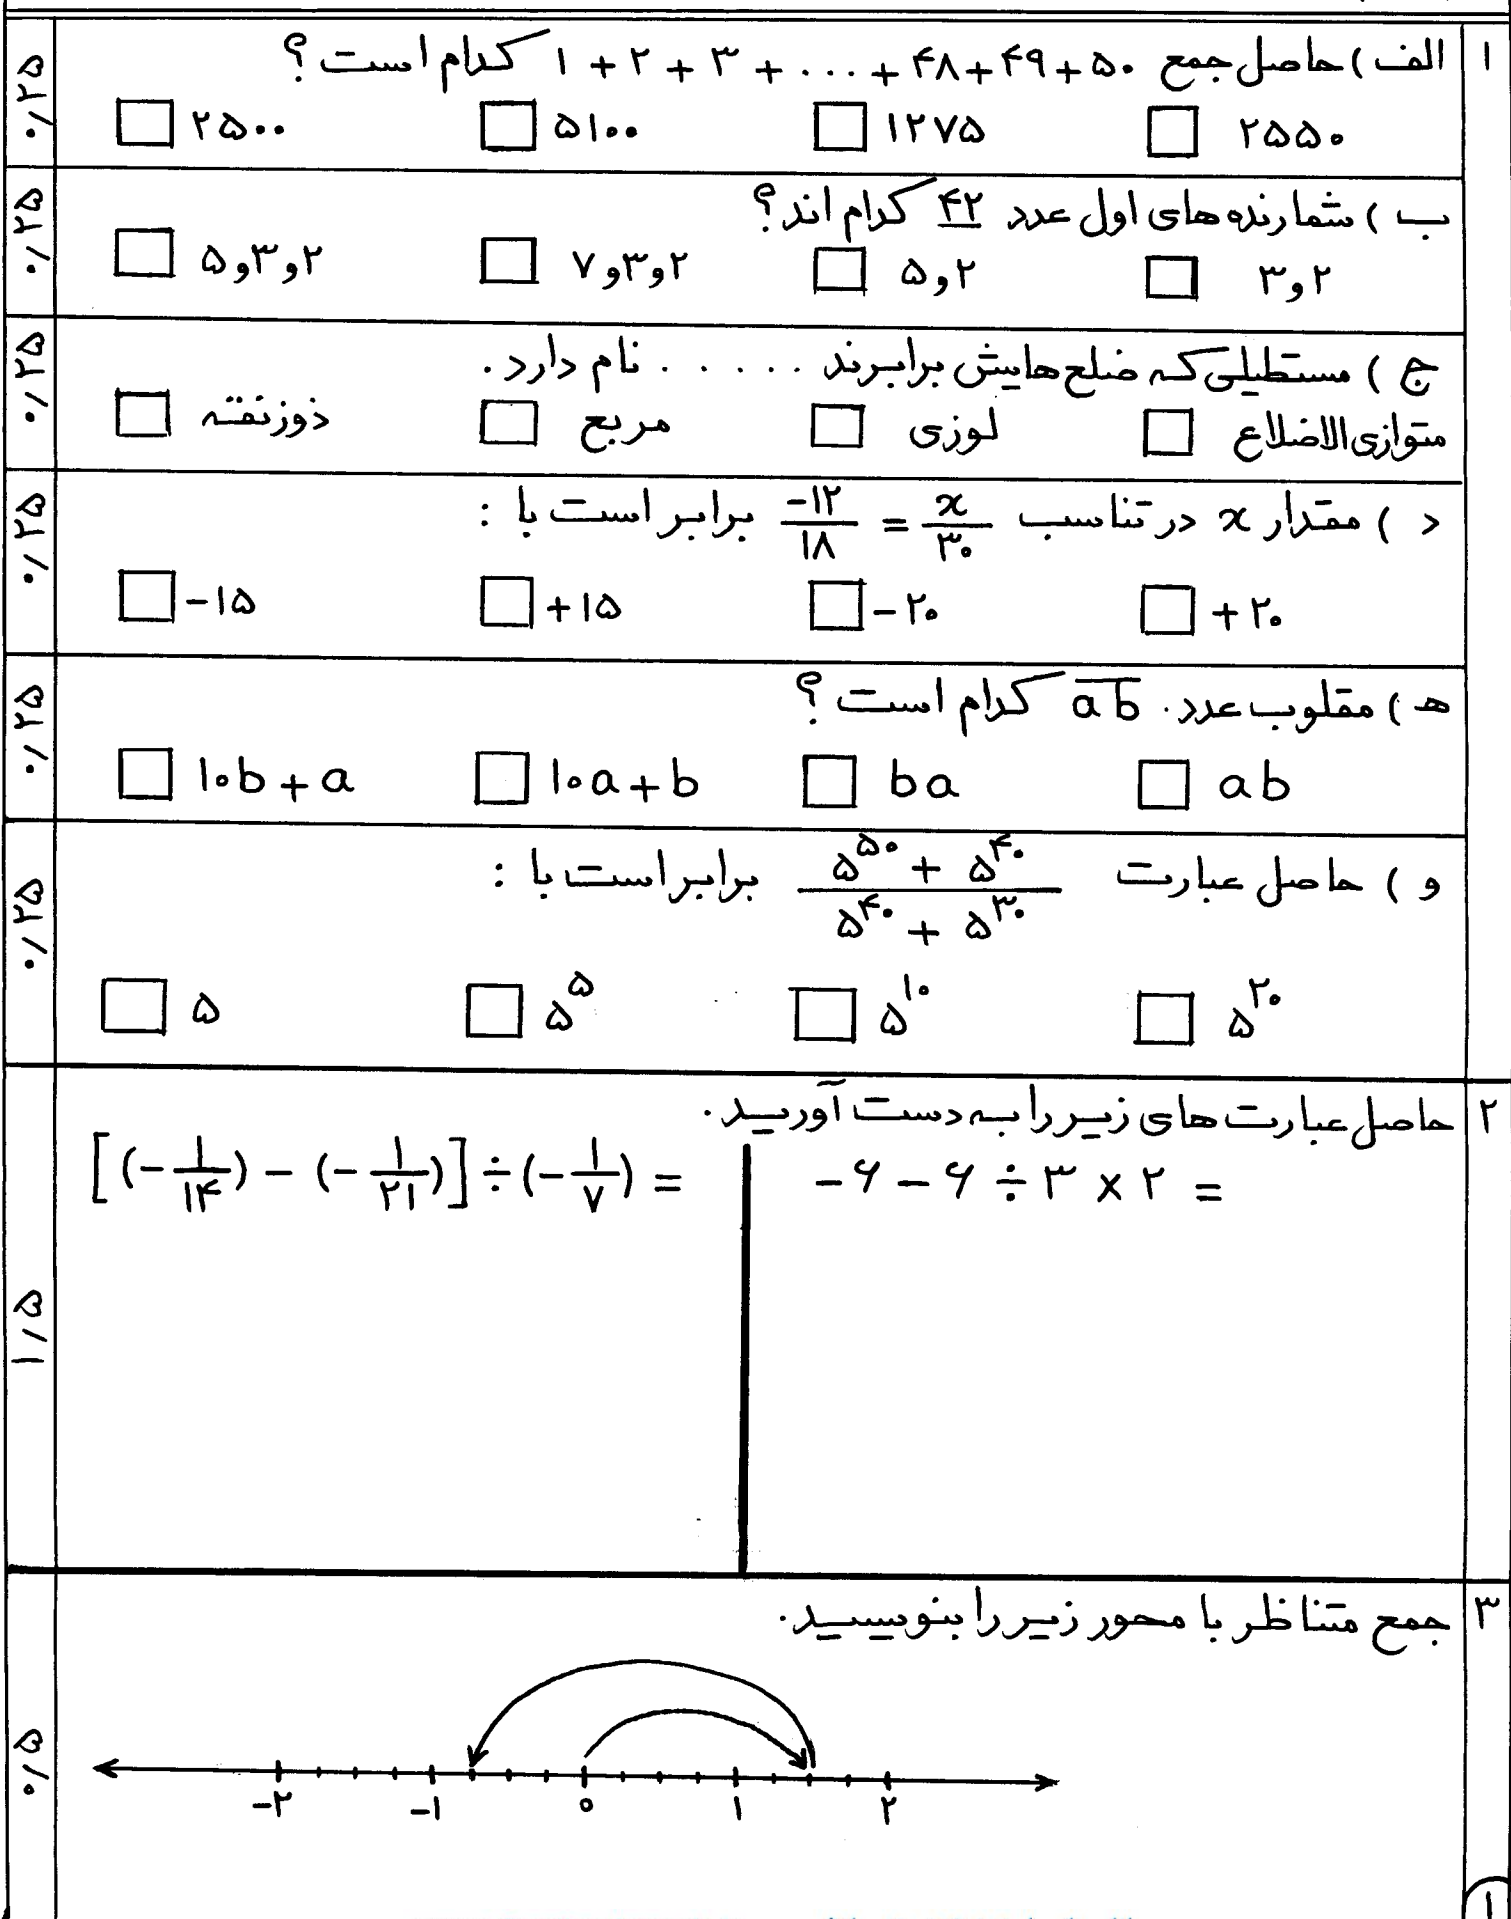 ۱ الف) حاصل جمع ۱ + ۲ + ۳ + ... + ۴۸ + ۴۹ + ۵۰ کدام است ؟ ۰/۲۵
۲۵۵۰ ۱۲۷۵ ۵۱۰۰ ۲۵۰۰
ب ) شمارنده های اول عدد ۴۲ کدام اند؟ ۰/۲۵
۲و۳ ۲و۵ ۲و۳و۷ ۲و۳و۵
ج ) مستطیلی که ضلع هایش برابرند ...... نام دارد. ۰/۲۵
متوازی الاضلاع لوزی مربع ذوزنقه
د ) مقدار x در تناسب -۱۲/۱۸ = x/۳۰ برابر است با : ۰/۲۵
+۲۰ -۲۰ +۱۵ -۱۵
ه ) مقلوب عدد. a̅b̅ کدام است ؟ ۰/۲۵
ab ba ۱۰a+b ۱۰b+a
و ) حاصل عبارت (۵^۵۰ + ۵^۴۰)/(۵^۴۰ + ۵^۳۰) برابر است با : ۰/۲۵
۵^۲۰ ۵^۱۰ ۵^۵ ۵
۲ حاصل عبارت های زیر را به دست آورید. ۱/۵
-۶ - ۶ ÷ ۳ × ۲ =
[(-۱/۱۴) - (-۱/۲۱)] ÷ (-۱/۷) =
۳ جمع متناظر با محور زیر را بنویسید. ۰/۵
-۲ -۱ ۰ ۱ ۲
۱